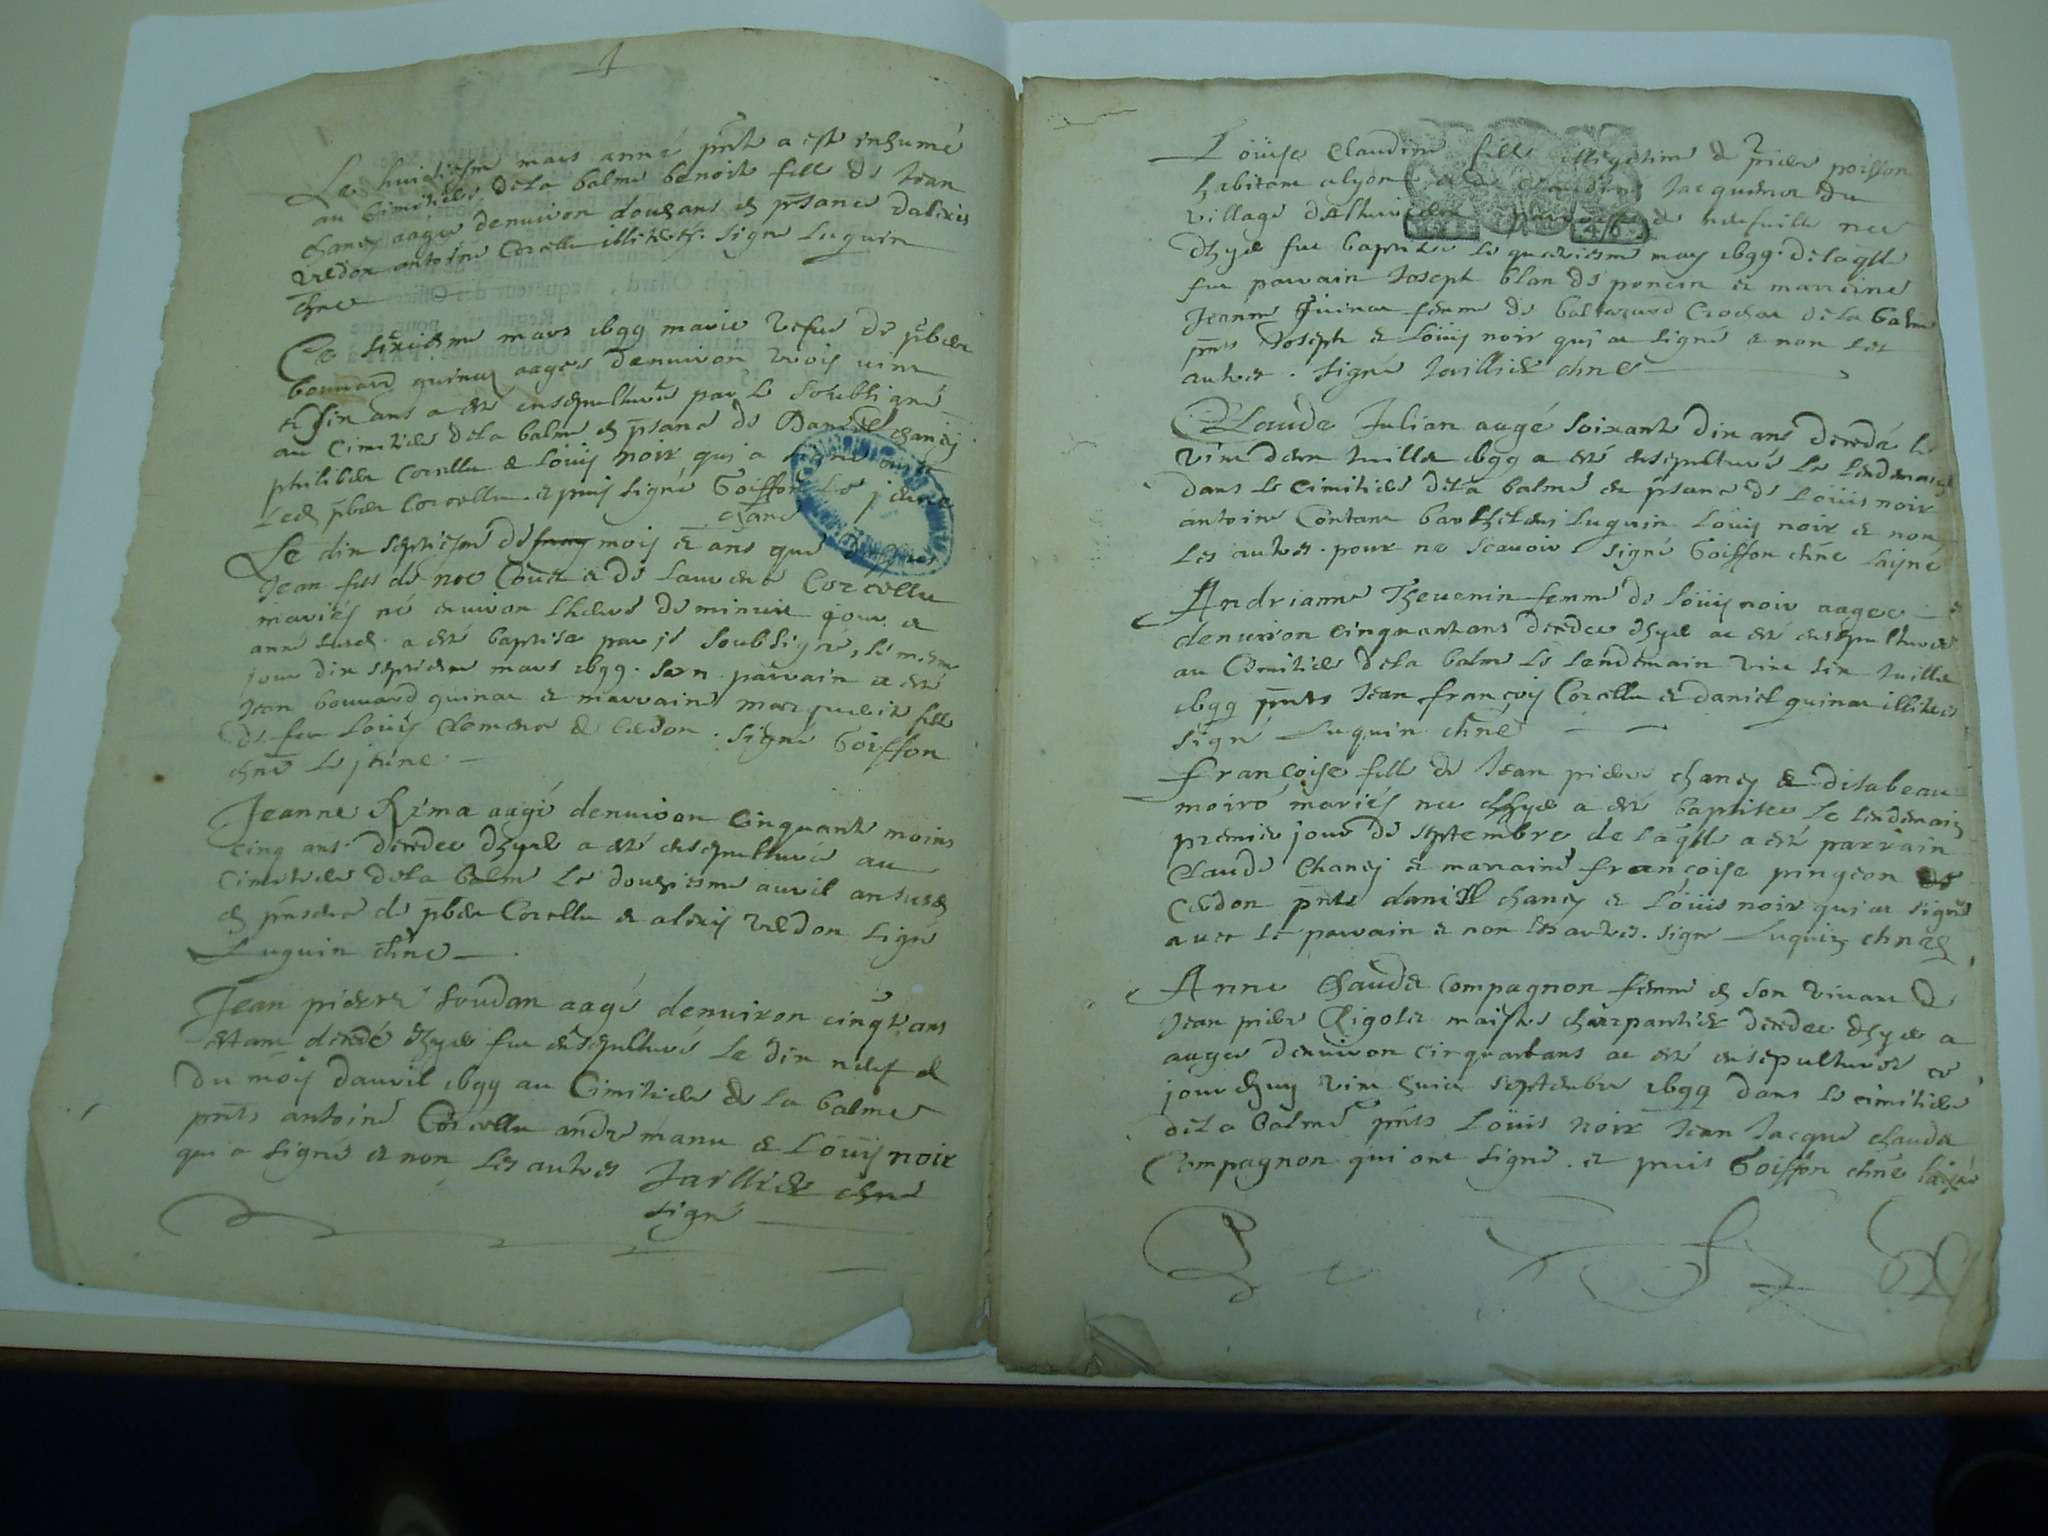 1
Le huictiesme mars anné pnt a esté inhumé
au Cimitiere dela balme benoite fille de Jean
chaney aagee denuiron douz ans en psance dalexis
verdon antoine Corcellu illiterés. signé Luguin
chne
Ce sixiesme mars 1699 marie vefue de pber
bouuard quinat aagee denuiron trois vint
et six ans a esté ensepulturee par le soubsigné
au Cimitiere dela balme en psance de Daniel chaney
philiber Corcellu et Louis noir qui a signé
pber Corcellu et puis signé Goiffon le jeune
chane
Le dix septiesme de may mois et ans que
Jean fils de noe Couet et de Laurence Corcellu
mariés né enuiron l'heure de minuit jour et
anné susd. a esté baptisé par je soubsigné, le mesme
jour dix septiesme mars 1699. son parrain a esté
Jean bouuard quinat et marraine marguerite fille
de feu Louis Clemenet de Cerdon. signé Goiffon
chne le jeune.
Jeanne Rema aagé denuiron cinquante moins
cinq ans decedee dhyer a esté ensepulturée au
cimitiere dela balme le douziesme auril an susd
en pnsence de pber Corcellu et alexis verdon signé
Luguin chne
Jean pierre soudan aagé denuiron cinq ans
estant decedé dhyer fut ensepulturé le dix neuf
du mois dauril 1699 au Cimitiere de la balme
pnts antoine Corcellu andre manu et Louis noir
qui a signé et non les autres Jaillier chne
signé
Louise Claudine fille illegitime de pierre poisson
habitant a lyon et de Claudine Jacquemet du
village paroisse de neufuille nee
dhyer fut baptisee le quatriesme may 1699. de laqlle
fut parrain Joseph blan de poncin et marrine
Jeanne quinat femme de baltazard Crochat dela balme
pnts Joseph et Louis noir qui ont signé et non les
autres. signé Jaillier chne
Claude Julian aagé soixante dix ans decedé le
vint deux Juillet 1699 a esté ensepulturé le lendemain
dans le cimitiere dela balme en psance de Louis noir
antoine Contant barthelemy Luguin Louis noir et non
les autres. pour ne scauoir signé Goiffon chne laisné
Andrianne Theuenin femme de Louis noir aagee
denuiron cinquante ans decedee dhyer a esté ensepulturee
au Cimitiere dela balme le lendemain vint six Juillet
1699 pnts Jean françois Corcellu et daniel quinat illiterés
signé Luguin chne
françoise fille de Jean pierre chaney et disabeau
moiro mariés nee dhyer a esté baptisee le lendemain
premier jour de septembre de laqlle a esté parrain
Claude Chaney et marraine françoise pingeon de
Cerdon pnts daniel chaney et Louis noir qui ont signé
auec le parrain et non les autres. signé Luguin chne
Anne Clauda Compagnon femme en son viuant de
Jean pierre Rigolet maistre charpantier decedee dhyer
aagee denuiron cinquante ans a esté ensepulturee ce
jourdhuy vint huict septembre 1699 dans le cimitiere
dela balme pnts Louis noir Jean Jacque chauda
Compagnon qui ont signé. et puis Goiffon chne laisné